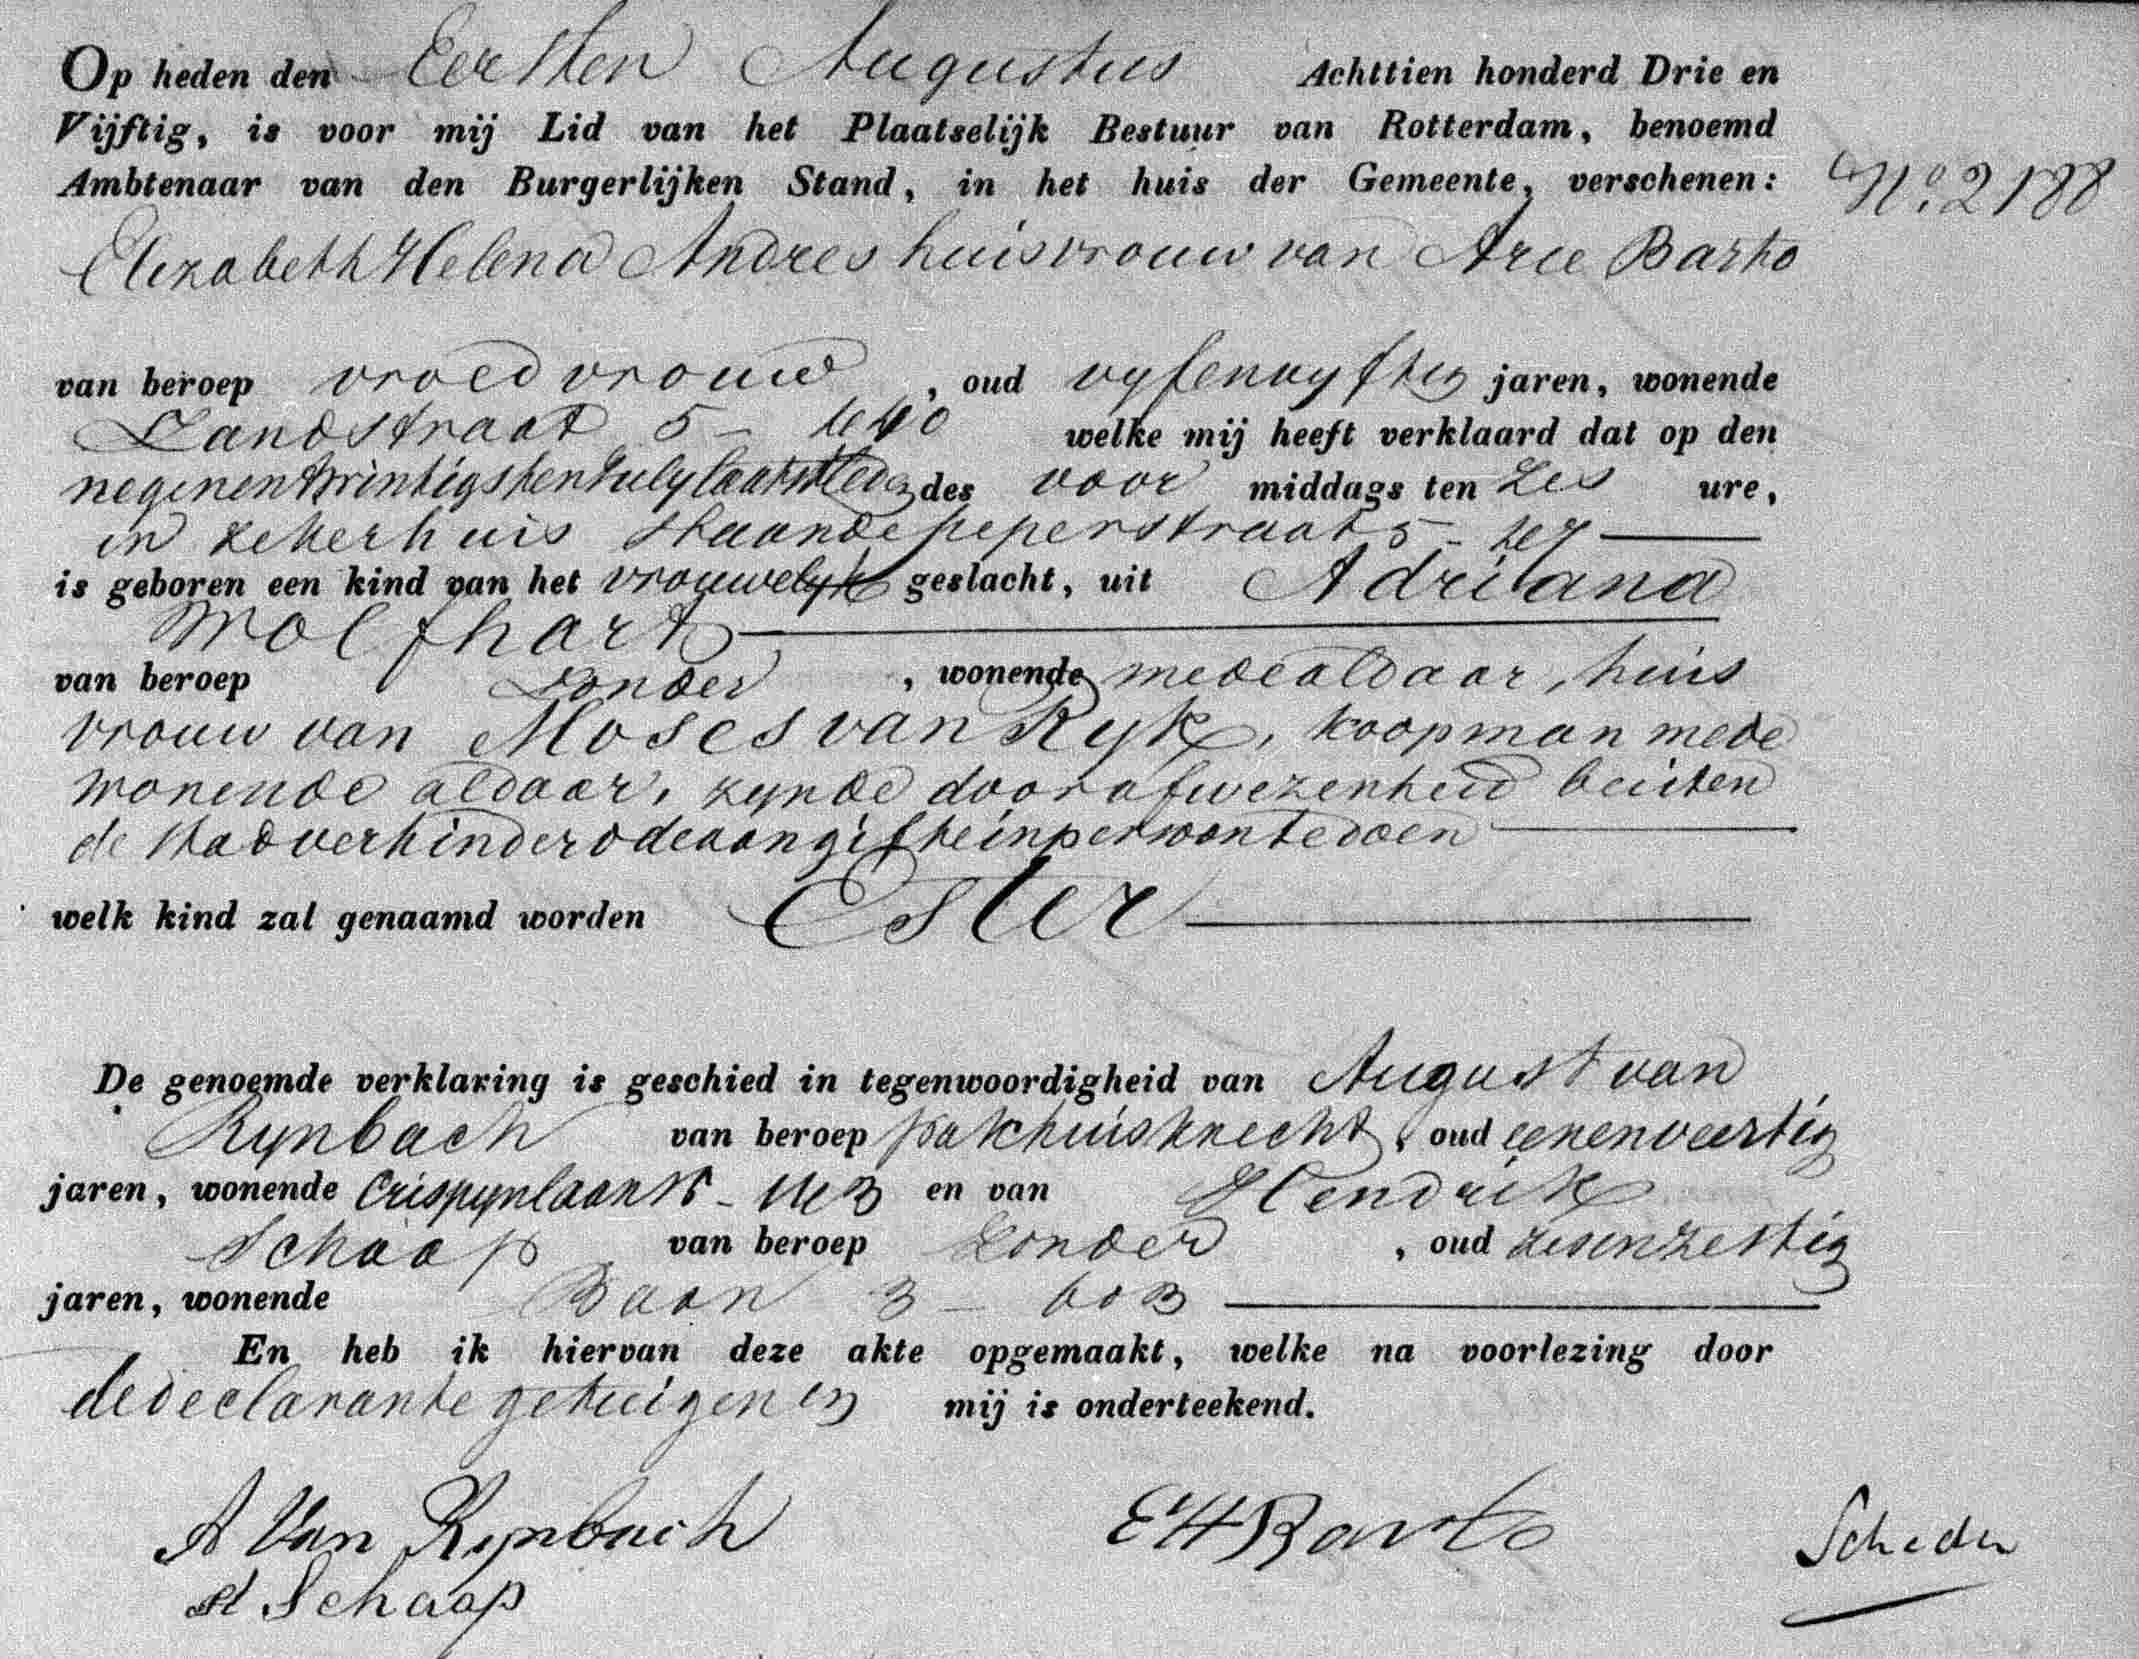 Op heden den Eersten Augustus Achttien honderd Drie en
Vijftig, is voor mij Lid van het Plaatselijk Bestuur van Rotterdam, benoemd
Ambtenaar van den Burgerlijken Stand, in het huis der Gemeente, verschenen:
No. 2188
Elizabeth Helena Andres huisvrouw van Arie Barto
van beroep vroedvrouw, oud vyfenvyftig jaren, wonende
Zandstraat 5 - welke mij heeft verklaard dat op den
negenentwintigsten July laatstleden des voor middags ten Zes ure,
in zekerhuis staande peperstraat 5 -
is geboren een kind van het vrouwelyk geslacht, uit Adriana
Wolfhart
van beroep Zonder, wonende medealdaar, huis
vrouw van Moses van Ryk, koopman mede
wonende aldaar, zynde door afwezenheid buiten
de stad verhinderd de aangifte in persoon te doen
welk kind zal genaamd worden Ester
De genoemde verklaring is geschied in tegenwoordigheid van August van
Rynbach van beroep pakhuisknecht, oud eenenveertig
jaren, wonende Crispynlaan en van Hendrik
Schaap van beroep Zonder, oud zesenzestig
jaren, wonende Baan 3 - 603
En heb ik hiervan deze akte opgemaakt, welke na voorlezing door
de declarante getuigen en mij is onderteekend.
A Van Rynbach
E H Barto
H Schaap